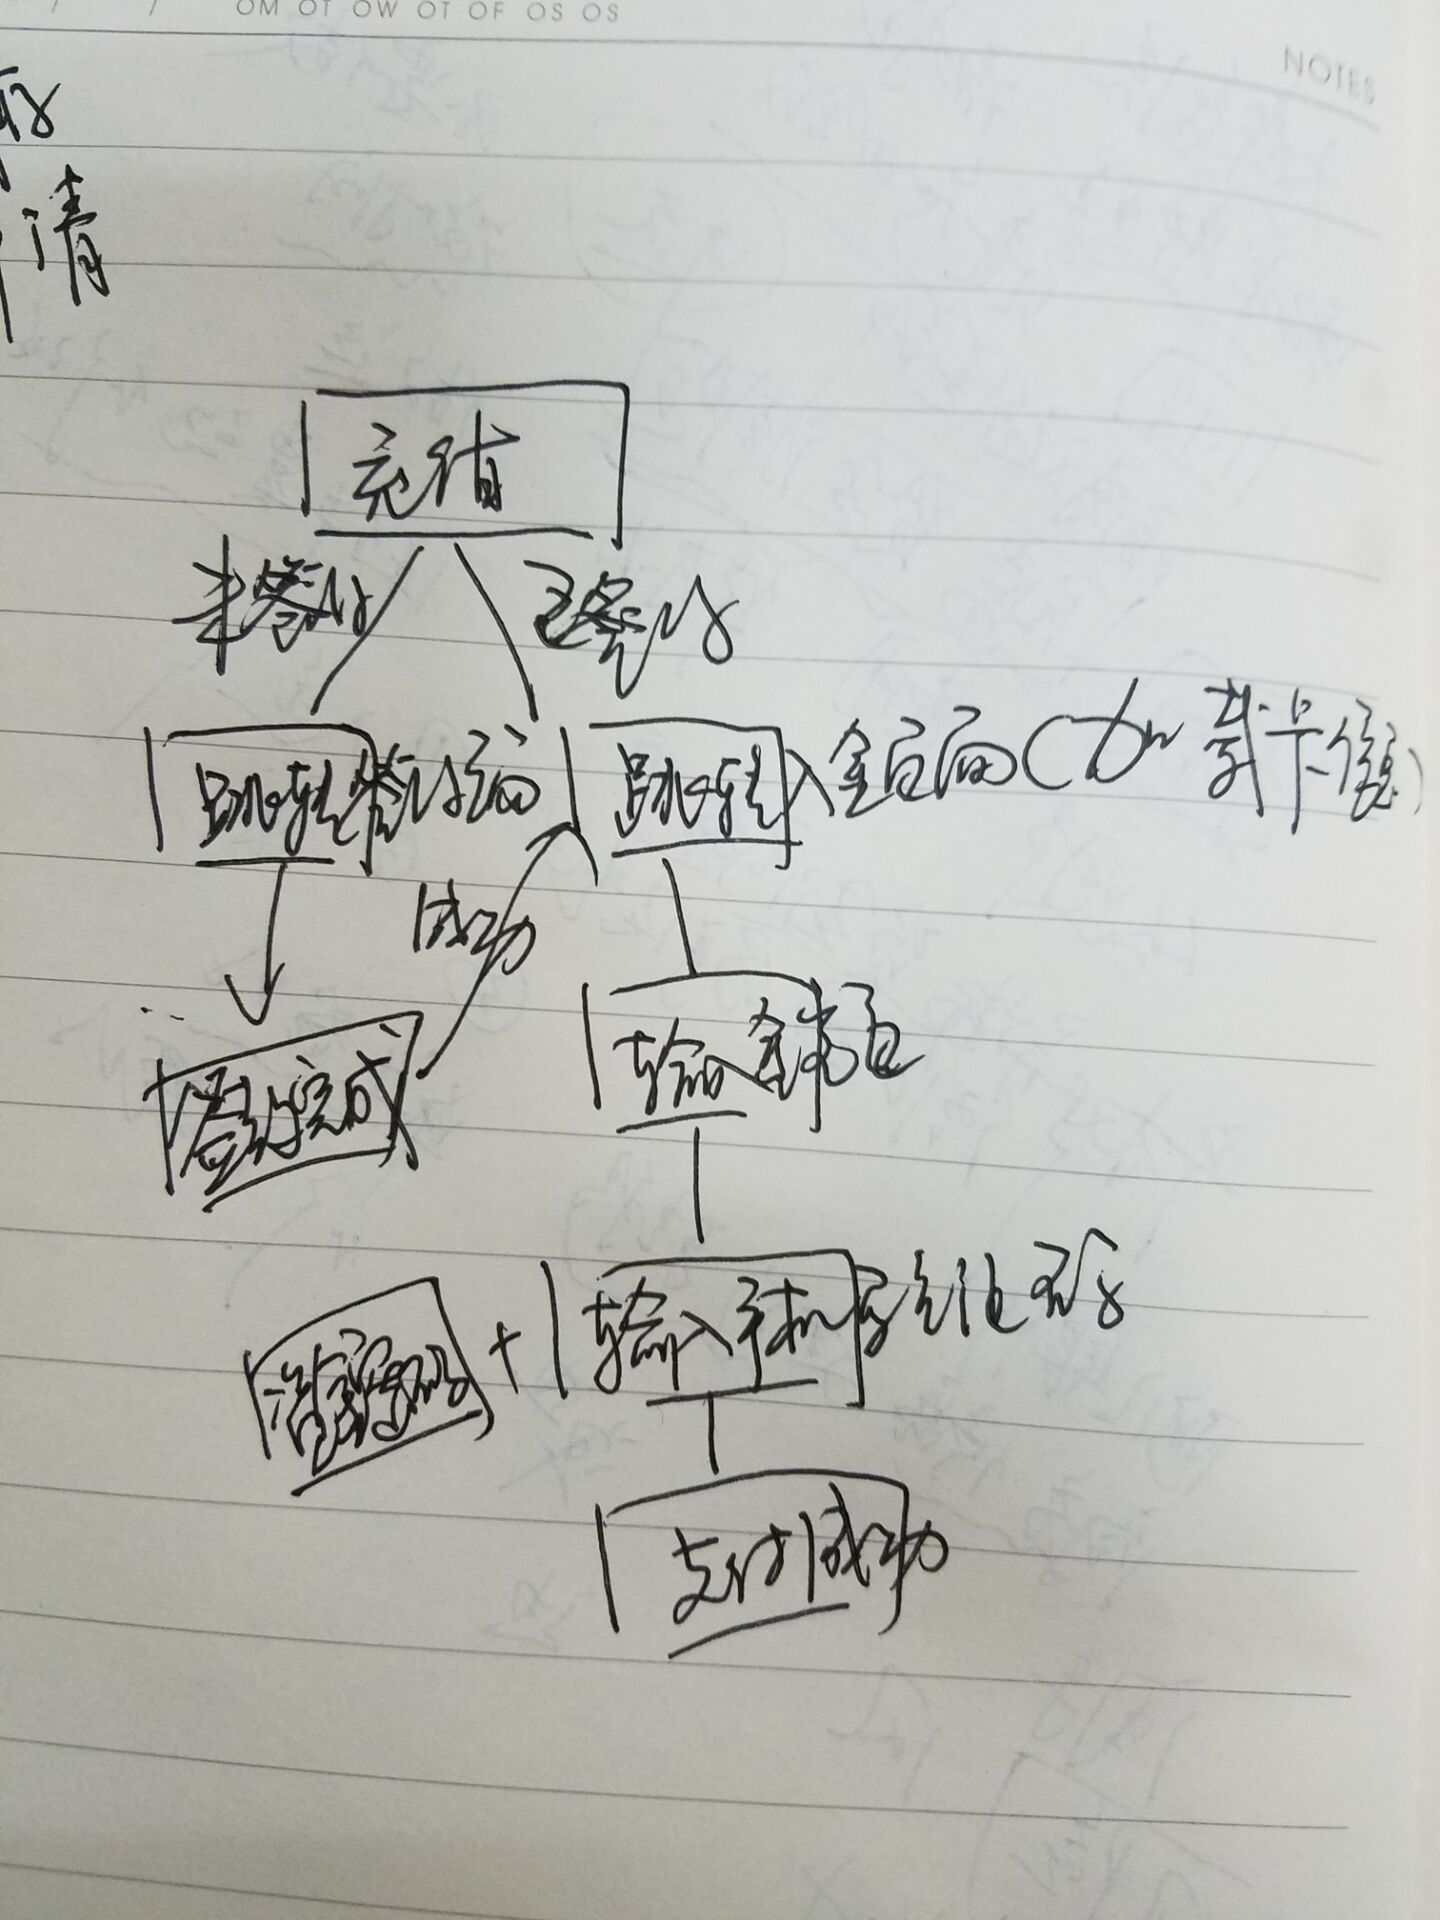 OM OT OW OT OF OS OS
NOTES
请
充值
未签约
已签约
跳转签约页面
跳转入金页面(
卡信息)
成功
输入金额
签约完成
输入手机号验证码
+
支付成功